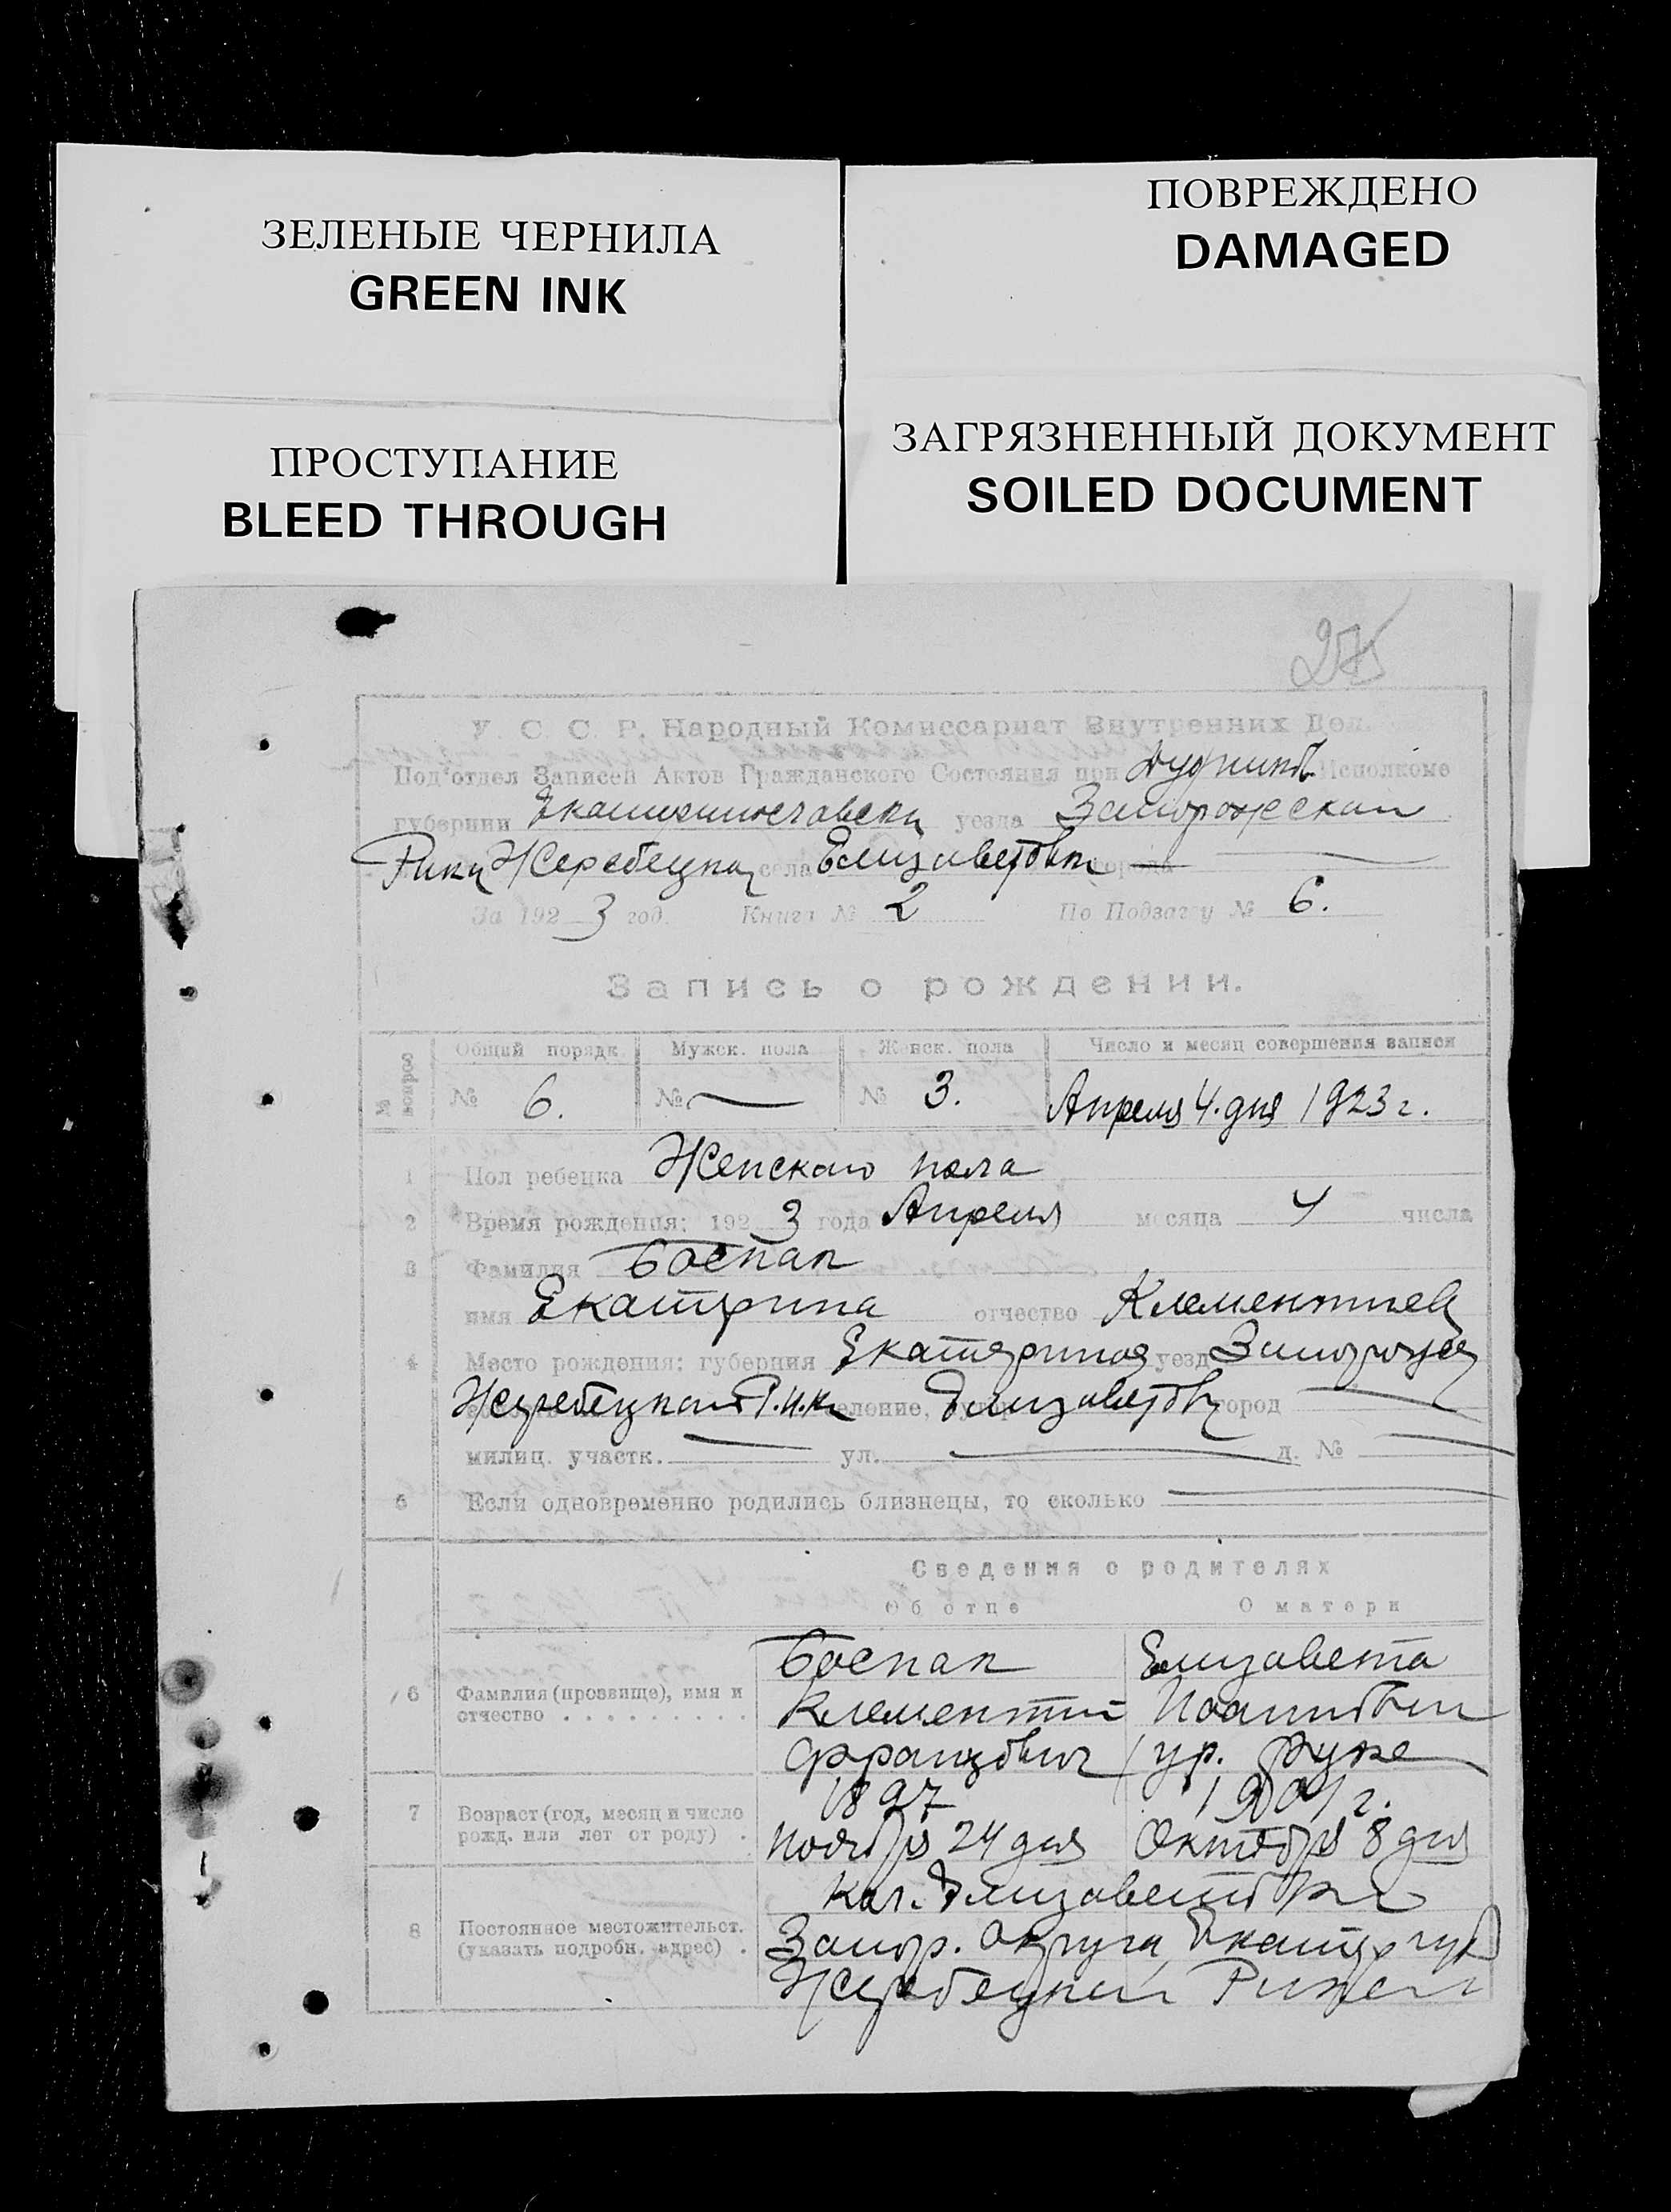 ЗЕЛЕНЫЕ ЧЕРНИЛА
GREEN INK
ПОВРЕЖДЕНО
DAMAGED
ПРОСТУПАНИЕ
BLEED THROUGH
ЗАГРЯЗНЕННЫЙ ДОКУМЕНТ
SOILED DOCUMENT
У. С. С. Р. Народный Комиссариат Внутренних
Под'отдел Записей Актов Гражданского Состояния при Исполкоме
губернии Екатеринославск уезда Запорожскаго
Рика Жеребецка села Елизаветовк города
За 1923 год. Книга № 2 По Подзагсу № 6.
Запись о рождении.
№ вопрос Общий порядк. Мужск. пола Женск. пола Число и месяц совершения записи
№ 6. № — № 3. Апреля 4. дня 1923 г.
1 Пол ребенка Женскаго пола
2 Время рождения: 1923 года Апреля месяца 4 числа
3 Фамилия Боспап
имя Екатерина отчество Клементиев
4 Место рождения: губерния Екатерино уезд Запорожс
Жеребецкаго Р.И.К. Елизаветовк город —
милиц. участк. — ул. — д. № —
5 Если одновременно родились близнецы, то сколько —
Сведения о родителях
Об отце О матери
6 Фамилия (прозвище), имя и отчество . . . . . . . . .
Боспап Елизавета
Клементий Иоанновн
Францович ур.
7 Возраст (год, месяц и число рожд. или лет от роду) .
1897 1901 г.
Ноября 24 дня Октября 8 дня
8 Постоянное местожительст. (указать подробн. адрес) .
кол. Елизаветовка
Запор. округа, Екатер губ
Жеребецкий